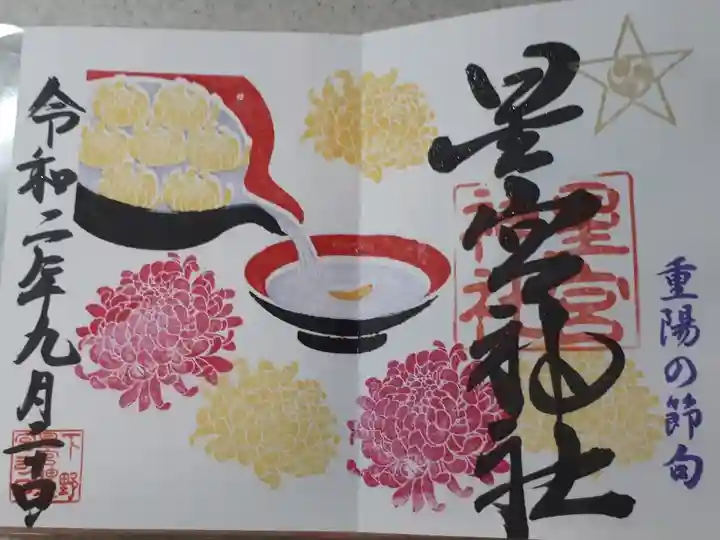 重陽の節句
星宮神社
星宮
神社
令和二年九月二十四日
下野